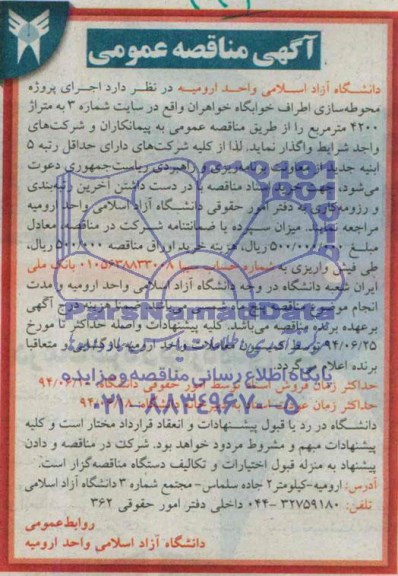 آگهی مناقصه عمومی
دانشگاه آزاد اسلامی واحد ارومیه در نظر دارد اجرای پروژه
محوطه‌سازی اطراف خوابگاه خواهران واقع در سایت شماره ۳ به متراژ
۴۲۰۰ مترمربع را از طریق مناقصه عمومی به پیمانکاران و شرکت‌های
واجد شرایط واگذار نماید. لذا از کلیه شرکت‌های دارای حداقل رتبه ۵
ابنیه جدید از معاونت برنامه‌ریزی و راهبردی ریاست‌جمهوری دعوت
می‌شود، جهت خرید اسناد مناقصه با در دست داشتن آخرین رتبه‌بندی
و رزومه کاری به دفتر امور حقوقی دانشگاه آزاد اسلامی واحد ارومیه
مراجعه نمایند. میزان سپرده یا ضمانتنامه شرکت در مناقصه، معادل
مبلغ ۵۰۰/۰۰۰/۰۰۰ ریال، هزینه خرید اوراق مناقصه ۵۰۰/۰۰۰ ریال،
طی فیش واریزی به شماره حساب سیبا ۰۱۰۵۶۳۸۸۳۳۰۰۸ بانک ملی
ایران شعبه دانشگاه در وجه دانشگاه آزاد اسلامی واحد ارومیه و مدت
انجام موضوع مناقصه ماه شمسی می‌باشد. ضمنا هزینه درج آگهی
برعهده برنده مناقصه می‌باشد. کلیه پیشنهادات واصله حداکثر تا مورخ
۹۴/۰۶/۲۵ توسط کمیسیون معاملات واحد ارومیه بازگشایی و متعاقبا
برنده اعلام می‌گردد.
حداکثر زمان فروش اسناد توسط امور حقوقی دانشگاه: ۹۴/۰۶/۱۰
حداکثر زمان عودت اسناد به دبیرخانه دانشگاه:
دانشگاه در رد یا قبول پیشنهادات و انعقاد قرارداد مختار است و کلیه
پیشنهادات مبهم و مشروط مردود خواهد بود. شرکت در مناقصه و دادن
پیشنهاد به منزله قبول اختیارات و تکالیف دستگاه مناقصه‌گزار است.
آدرس: ارومیه-کیلومتر۲ جاده سلماس- مجتمع شماره ۳ دانشگاه آزاد اسلامی
تلفن: ۳۲۷۵۹۱۸۰-۰۴۴ داخلی دفتر امور حقوقی ۳۶۲
روابط‌عمومی
دانشگاه آزاد اسلامی واحد ارومیه
ParsNamadData
پایگاه اطلاع رسانی مناقصه و مزایده
۰۲۱-۸۸۳۴۹۶۷۰-۵